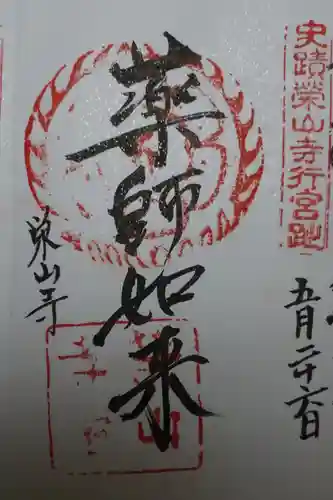 史蹟榮山寺行宮趾
五月二十六日
薬師如来
栄山寺